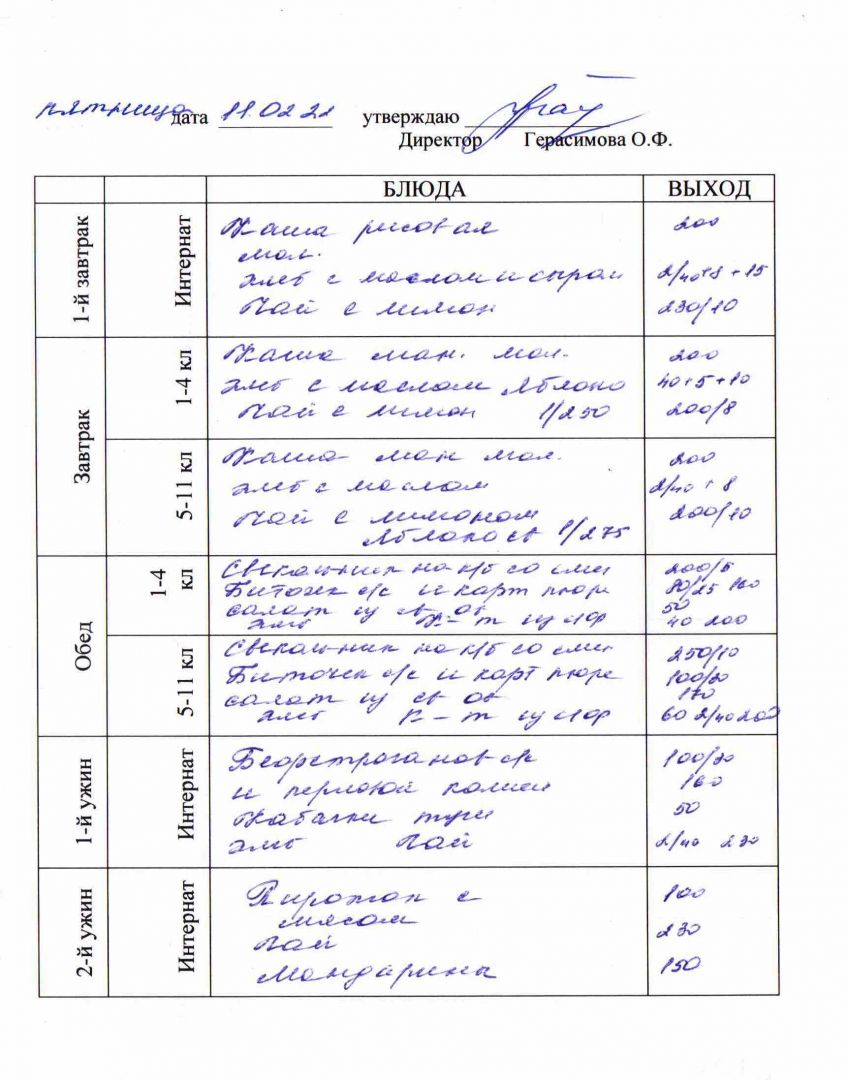 пятница дата 11.02 22 утверждаю
Директор Герасимова О.Ф.
БЛЮДА ВЫХОД
1-й завтрак Интернат
Каша рисовая 200
мол.
хлеб с маслом и сыром 2/40+8+15
Чай с лимон 230/10
Завтрак
1-4 кл
Каша ман. мол. 200
хлеб с маслом Яблоко 40+5+10
Чай с лимон 1/250 200/8
5-11 кл
Каша ман мол. 200
хлеб с маслом 2/40+8
Чай с лимоном 200/10
Яблоко св 1/275
Обед
1-4 кл
Свекольник на к/б со сме 200/5
Биточек с/с и карт пюре 80/25 160
салат из св ов 50
хлеб К-т из с/ф 40 200
5-11 кл
Свекольник на к/б со сме 250/10
Биточек с/с и карт пюре 100/30
салат из св ов 170
хлеб К-т из с/ф 60 2/40 200
1-й ужин Интернат
Бефстроганов с/с 100/30
и перловой кашей 160
Кабачки туш 50
хлеб Чай 2/40 230
2-й ужин Интернат
Пирожок с 100
мясом
Чай 230
Мандарины 150